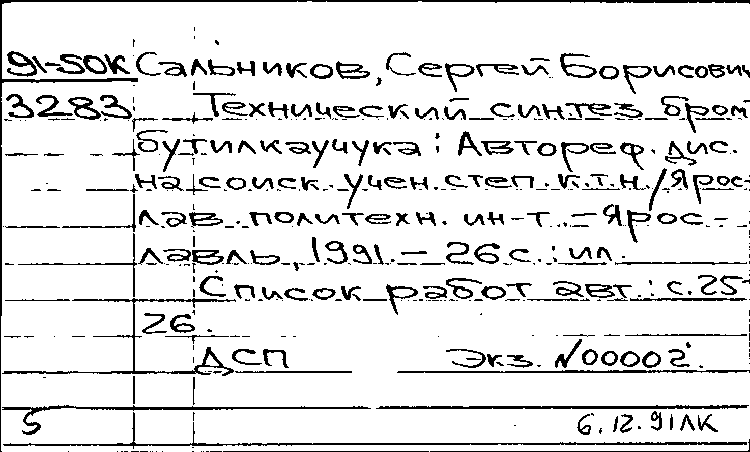 91-50К Сальников, Сергей Борисович
3283 Технический синтез бром
бутилкаучука : Автореф. дис.
на соиск. учен. степ. к.т.н. / Ярос-
лав. политехн. ин-т. - Ярос -
лавль, 1991. - 26 с. : ил.
Список работ авт. : с. 25-
26.
ДСП Экз. N00002.
5 6.12.91 ЛК